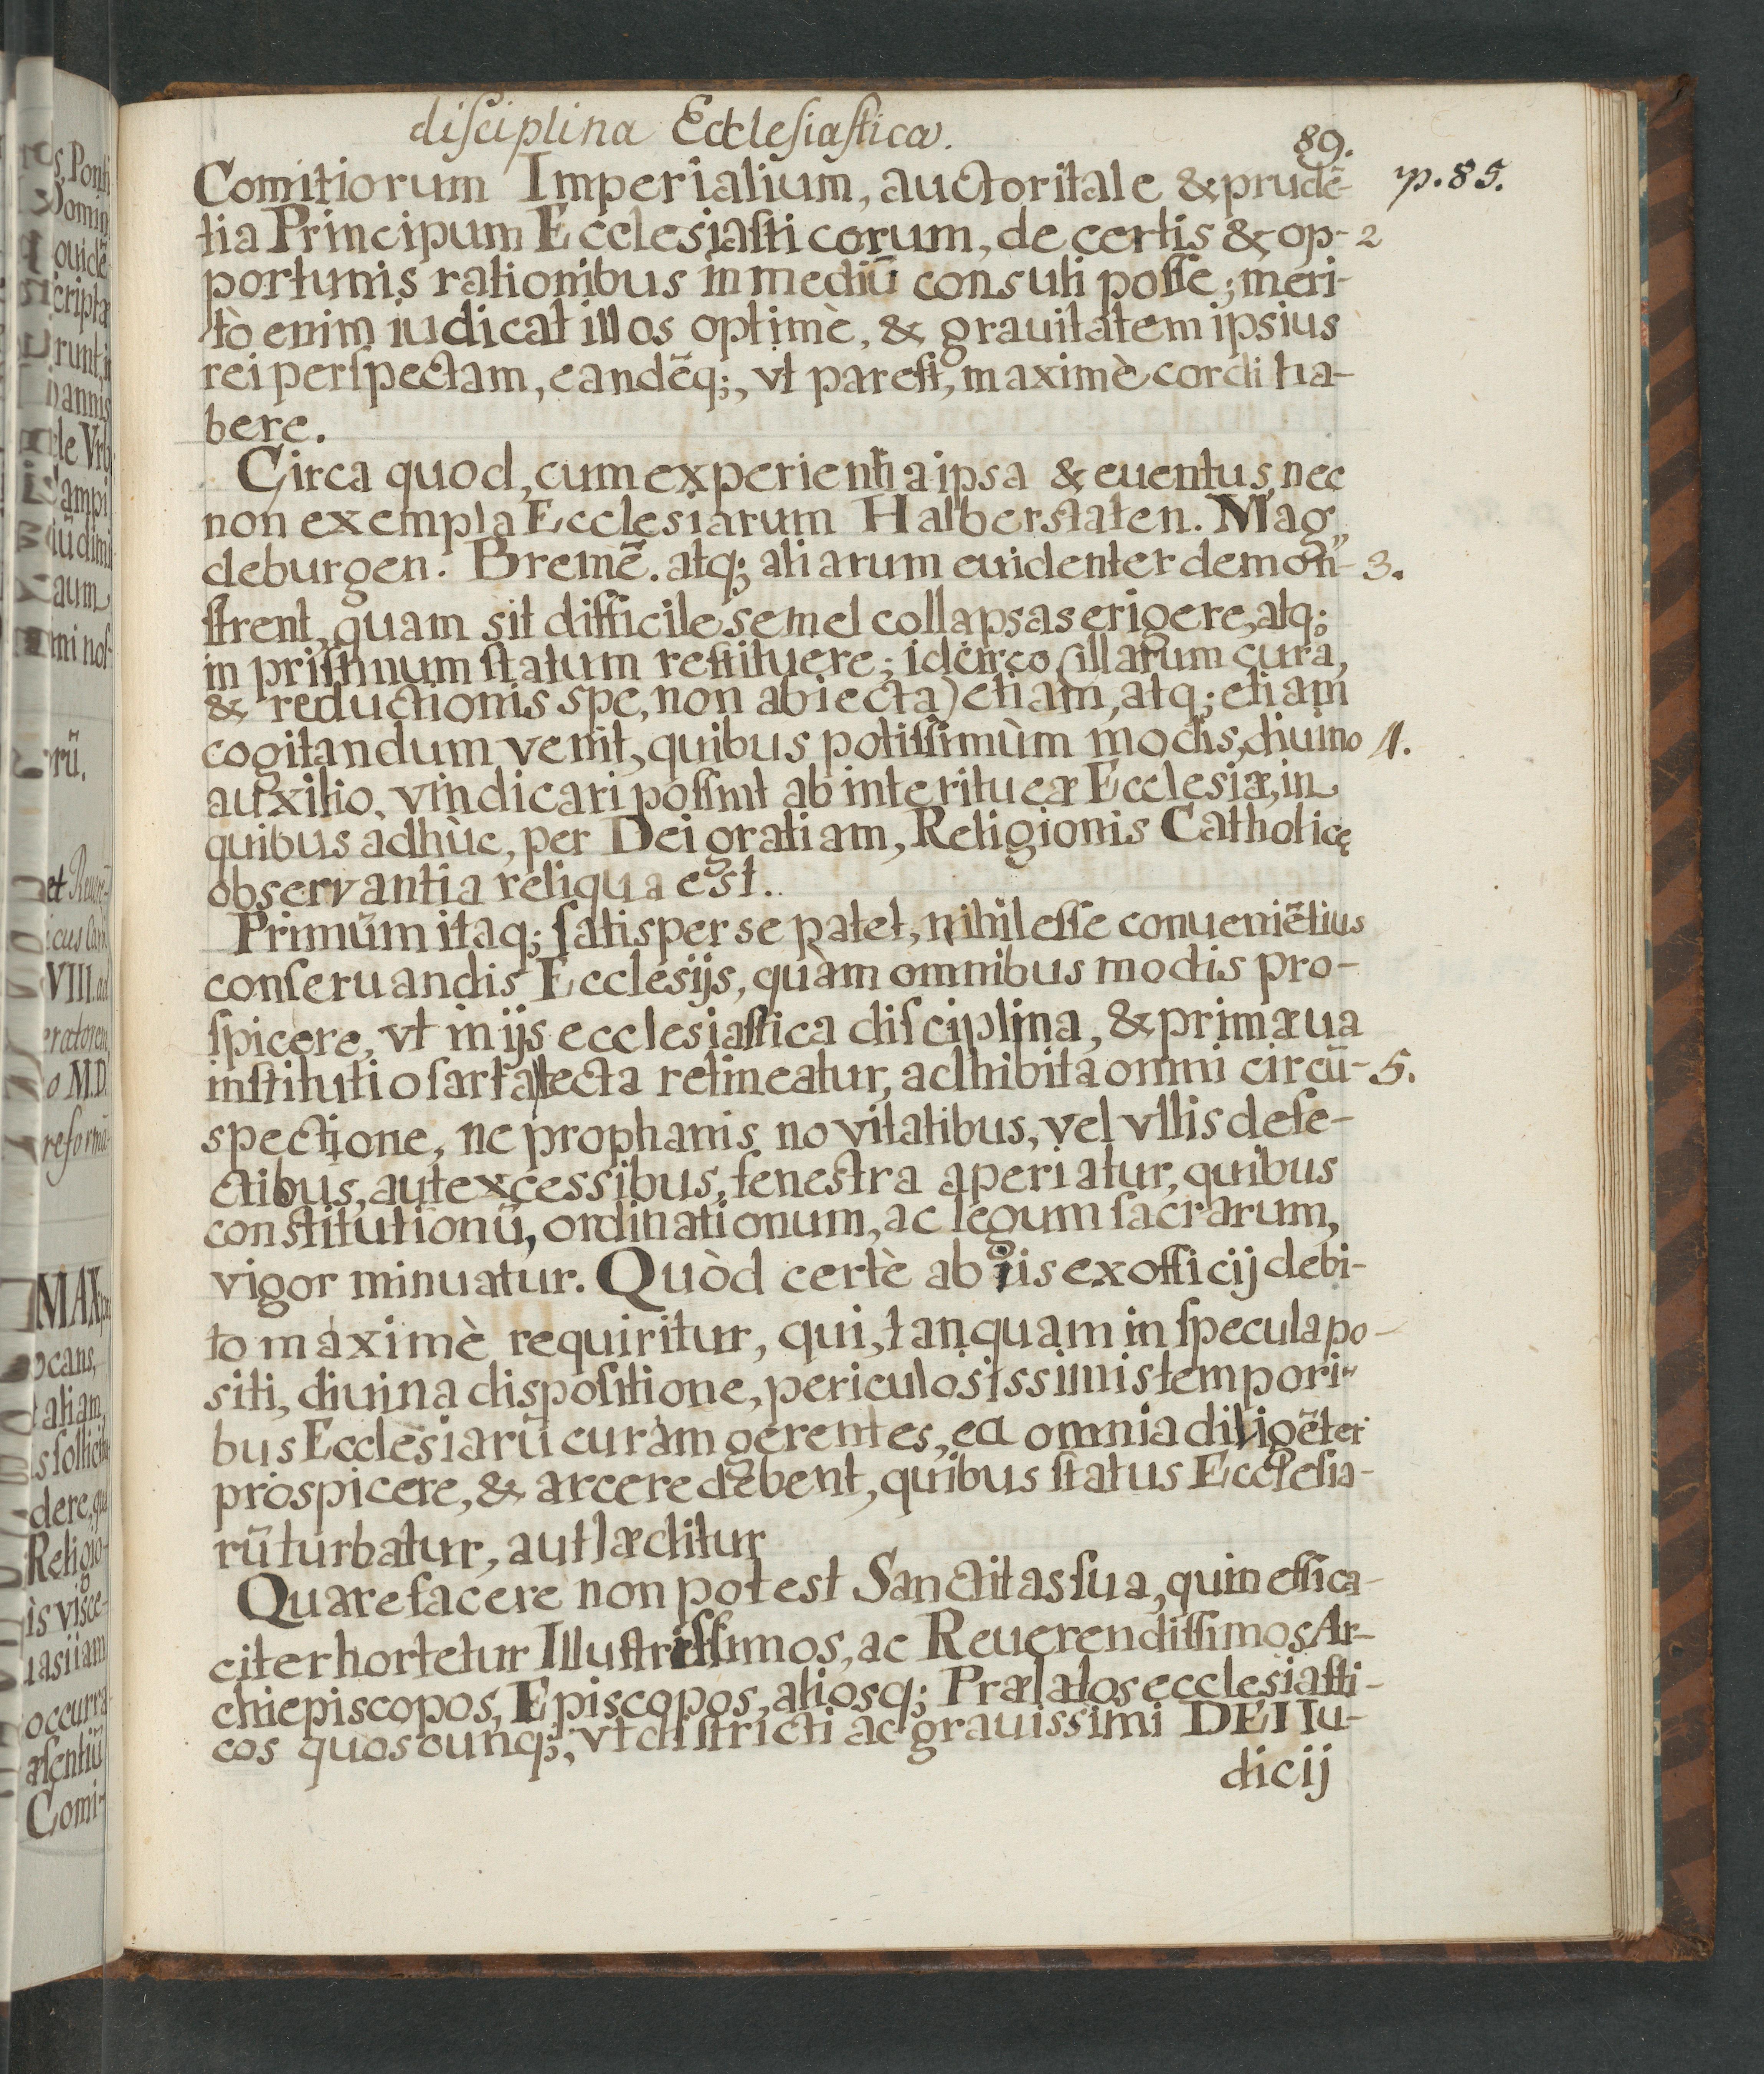 disciplina Ecclesiastica.
89.
Comitiorum Imperialium, auctoritate & prudē-
p. 85.
tia Principum Ecclesiasticorum, de certis & op-
2
portunis rationibus in mediū consuli posse; meri-
tò enim iudicat illos optimè, & grauitatem ipsius
rei perspectam, eandēq;, vt par est, maximè cordi ha-
bere.
Circa quod, cum experientia ipsa & euentus, nec
non exempla Ecclesiarum Halberstaten. Mag„
deburgen. Bremē. atq; aliarum euidenter demon-
3.
strent, quam sit difficile semel collapsas erigere, atq;
in pristinum statum restituere; idcirco (illarum cura,
& reductionis spe, non abiecta) etiam, atq; etiam
cogitandum venit, quibus potissimùm modis, diuino
4.
auxilio, vindicari possint ab interitu eæ Ecclesiæ, in
quibus adhùc, per Dei gratiam, Religionis Catholicę
observantia reliqua est.
Primùm itaq; satis per se patet, nihil esse conueniētius
conseruandis Ecclesijs, quàm omnibus modis pro-
spicere, vt in ijs ecclesiastica disciplina, & primæua
institutio sarta tecta retineatur, adhibita omni circū-
5.
spectione, ne prophanis novitatibus, vel vllis defe-
ctibus, aut excessibus, fenestra aperiatur, quibus
constitutionū, ordinationum, ac legum sacrarum,
vigor minuatur. Quòd certè ab iis ex officij debi-
to maximè requiritur, qui, tanquam in specula po-
siti, diuina dispositione, periculosissimis tempori-
bus Ecclesiarū curam gerentes, ea omnia diligēter
prospicere, & arcere debent, quibus status Ecclesia-
rū turbatur, aut læditur
Quare facere non potest Sanctitas sua, quin effica-
citer hortetur Illustrissimos, ac Reuerendissimos Ar-
chiepiscopos, Episcopos, aliosq; Prælatos ecclesiasti-
cos quoscunq;, vt districti ac grauissimi DEI Iu-
dicij